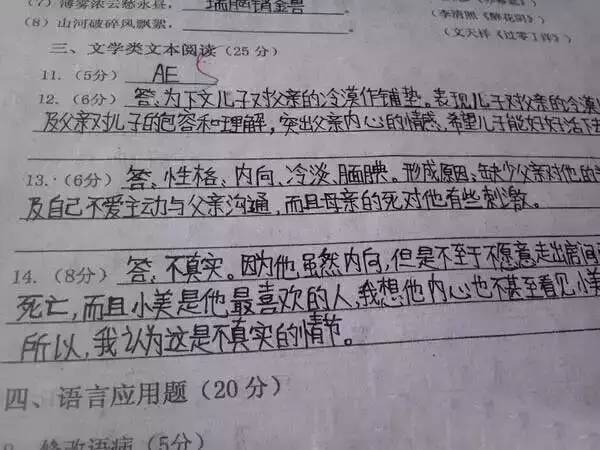 (7) 薄雾浓云愁永昼，瑞脑销金兽
(李清照《醉花阴》)
(8) 山河破碎风飘絮，
(文天祥《过零丁洋》)
三、文学类文本阅读（25 分）
11.（5分） AE
12.（6分） 答：为下文儿子对父亲的冷漠作铺垫。表现儿子对父亲的冷漠
及父亲对儿子的包容和理解，突出父亲内心的情感，希望儿子能好好活下去
13.（6分） 答：性格、内向、冷淡、腼腆。形成原因：缺少父亲对他的
及自己不爱主动与父亲沟通，而且母亲的死对他有些刺激。
14.（8分） 答：不真实。因为他虽然内向，但是不至于不愿意走出房间
死亡，而且小美是他最喜欢的人，我想他内心也不甚至看见小美
所以，我认为这是不真实的情节。
四、语言应用题（20 分）
修改语病（5分）